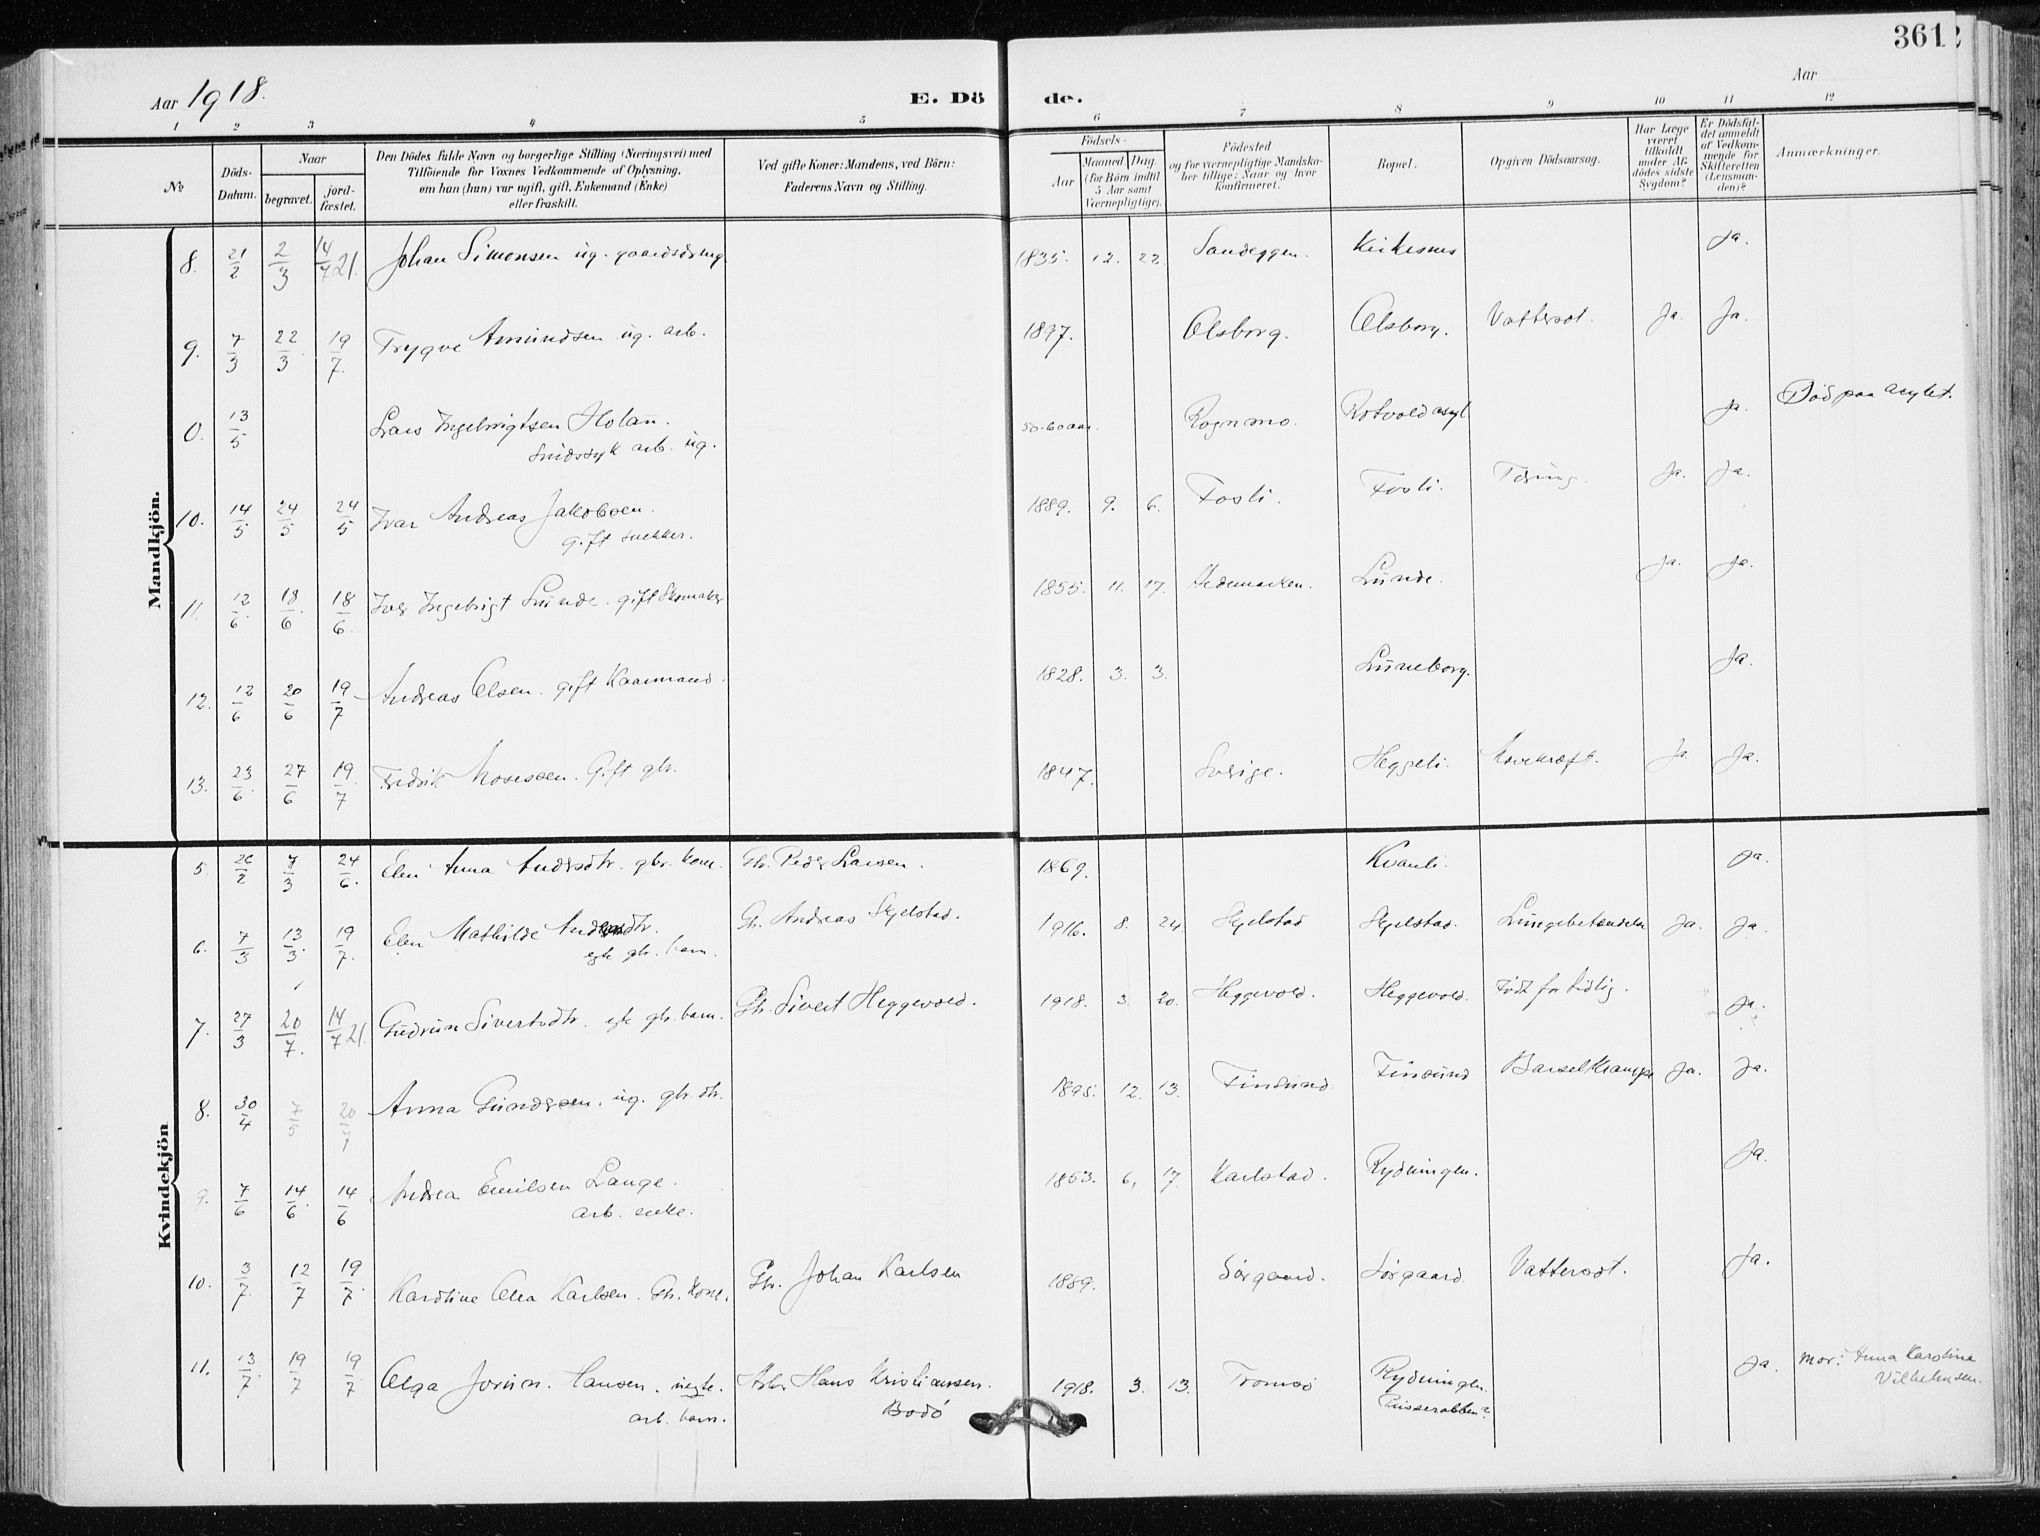 361
Aar 1918.
E. Dö de.
Aar
1 2 3 4 5 6 7 8 9 10 11 12
No
Döds-Datum.
Naar
begravet.
jord-fæstet.
Den Dödes fulde Navn og borgerlige Stilling (Næringsvei) med
Tilföiende for Voxnes Vedkommende af Oplysning,
om han (hun) var ugift, gift, Enkemand (Enke)
eller fraskilt.
Ved gifte Koner: Mandens, ved Börn:
Faderens Navn og Stilling.
Födsels-
Aar
Maaned Dag
(for Börn indtil
5 Aar samt
Værnepligtige).
Födested
og for værnepligtige Mandska-
ber tillige: Naar og hvor
konfirmeret.
Bopæl.
Opgiven Dödsaarsag.
Har Læge
været
tilkaldt
under Af-
dödes sidste
Sygdom?
Er Dödsfal-
det anmeldt
af Vedkom-
mende for
Skifteretten
(Lensman-
den)?
Anmærkninger.
Mandkjön.
8. 21/2 2/3 14/7 21. Johan Simonsen ug. gaardsdreng 1835. 12. 22. Sandeggen. Kirkesnes Ja.
9. 7/3 22/3 19/7. Trygve Amundsen ug. arb. 1897. Olsborg. Olsborg. Vattersot. Ja. Ja.
0. 13/5 Lars Ingebrigtsen Holan. 50-60 aar. Rognmo. Rotvold asyl Ja. Död paa asylet.
sindssyk arb. ug.
10. 14/5 24/5 24/5 Ivar Andreas Jakobsen. 1889. 9. 6. Fosli. Fosli. Tæring. Ja. Ja.
gift snekker.
11. 12/6. 18/6 18/6. Iver Ingebrigt Lunde. gift Skomaker 1855. 11. 17. Hedemarken. Lunde. Ja. Ja.
12. 12/6 20/6 19/7 Andreas Olsen. gift Kaarmand. 1828. 3. 3. Luneborg. Ja.
13. 23/6. 27/6 19/7 Fredrik Mosesen. Gift gbr. 1847. Sverige. Heggeli. Mavekræft. Ja. Ja.
Kvindekjön
5. 26/2 7/3 24/6. Elen Anna Andersdtr. gbr. kone. Gbr. Peder Larsen. 1869. Kvanli. Ja.
6. 7/3 13/3. 19/7. Elen Mathilde Andersdtr. Gbr. Andreas Skjelstad. 1916. 8. 24. Skjelstad Skjelstad. Lungebetændelse Ja. Ja.
egte gbr. barn.
7. 27/3 20/7. 14/7 21. Gudrun Sivertsdtr. egte gbr. barn. Gbr. Sivert Heggevold. 1918. 3. 20. Heggevold. Heggevold. Født for tidlig. Ja.
8. 30/4 7/5 20/7 Anna Gundersen. ug. gbr. dtr. 1895. 12. 13. Finsund. Finsund Barselkrampe Ja. Ja.
9. 7/6 14/6. 14/6 Andrea Emilsen Lange. 1853. 6. 17. Karlstad. Rydningen. Ja.
arb. enke.
10. 3/7. 12/7 19/7. Karoline Olea Karlsen. Gbr. kone. Gbr. Johan Karlsen 1889. Sørgaard. Sørgaard. Vattersot. Ja.
11. 13/7. 19/7 19/7. Olga Jorun. Hansen. uegte. Arb. Hans Kristiansen. 1918. 3. 13. Tromsö Rydningen. Ja. Mor: Anna Karoline
arb. barn. Bodö Vilhelmsen.